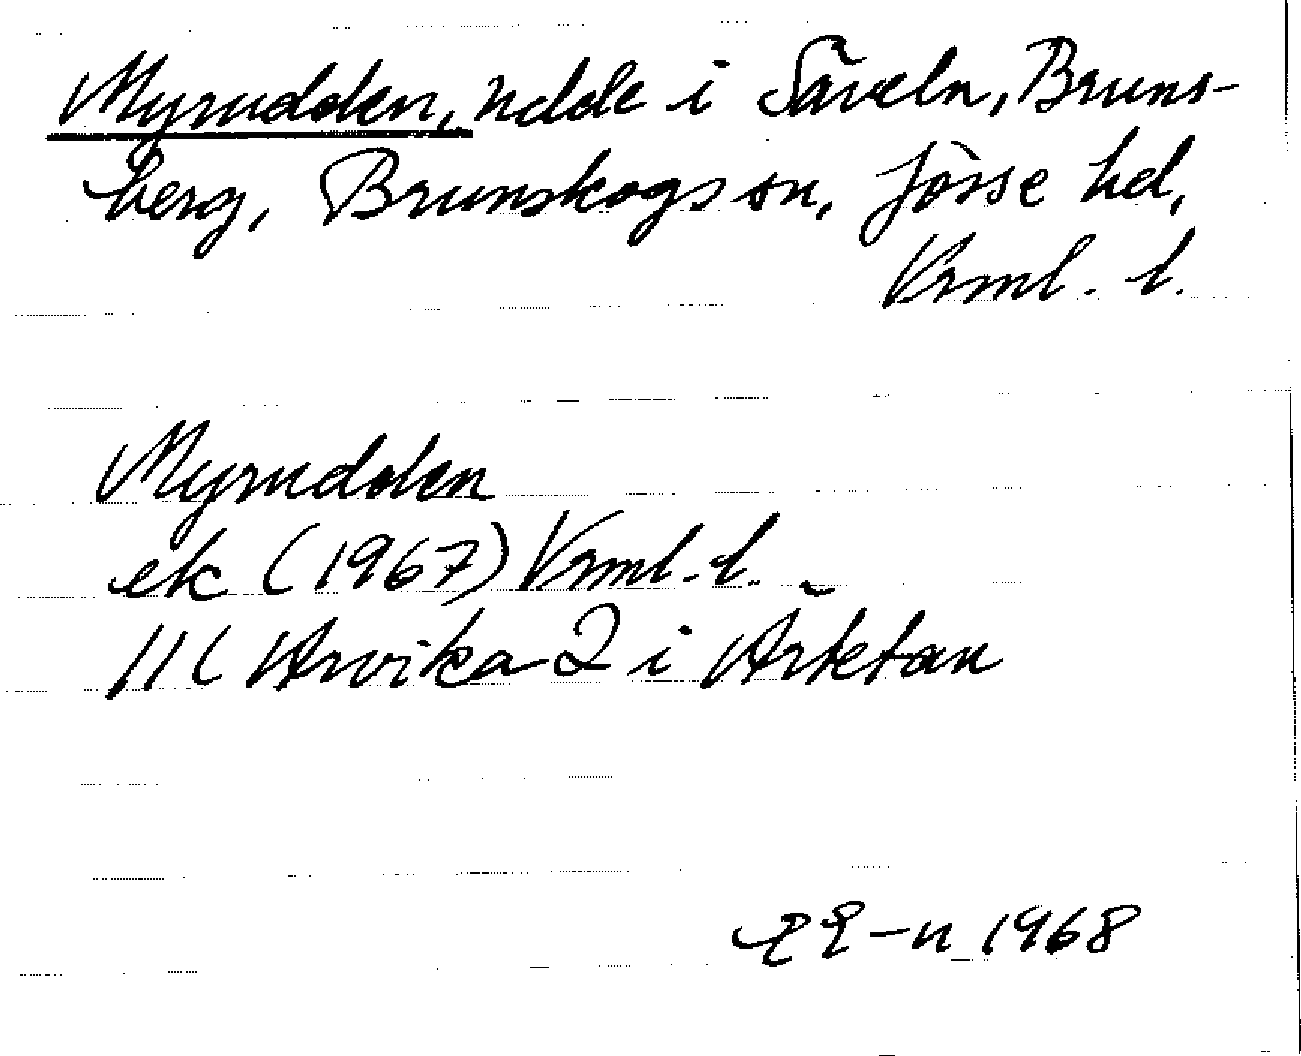 Myrudden, udde i Säveln, Bruns-
berg, Brunskogs sn, Jösse hd,
Vrml. l.
Myrudden
ek (1967) Vrml. l.
11C Arvika 2 i Ärktan
1968